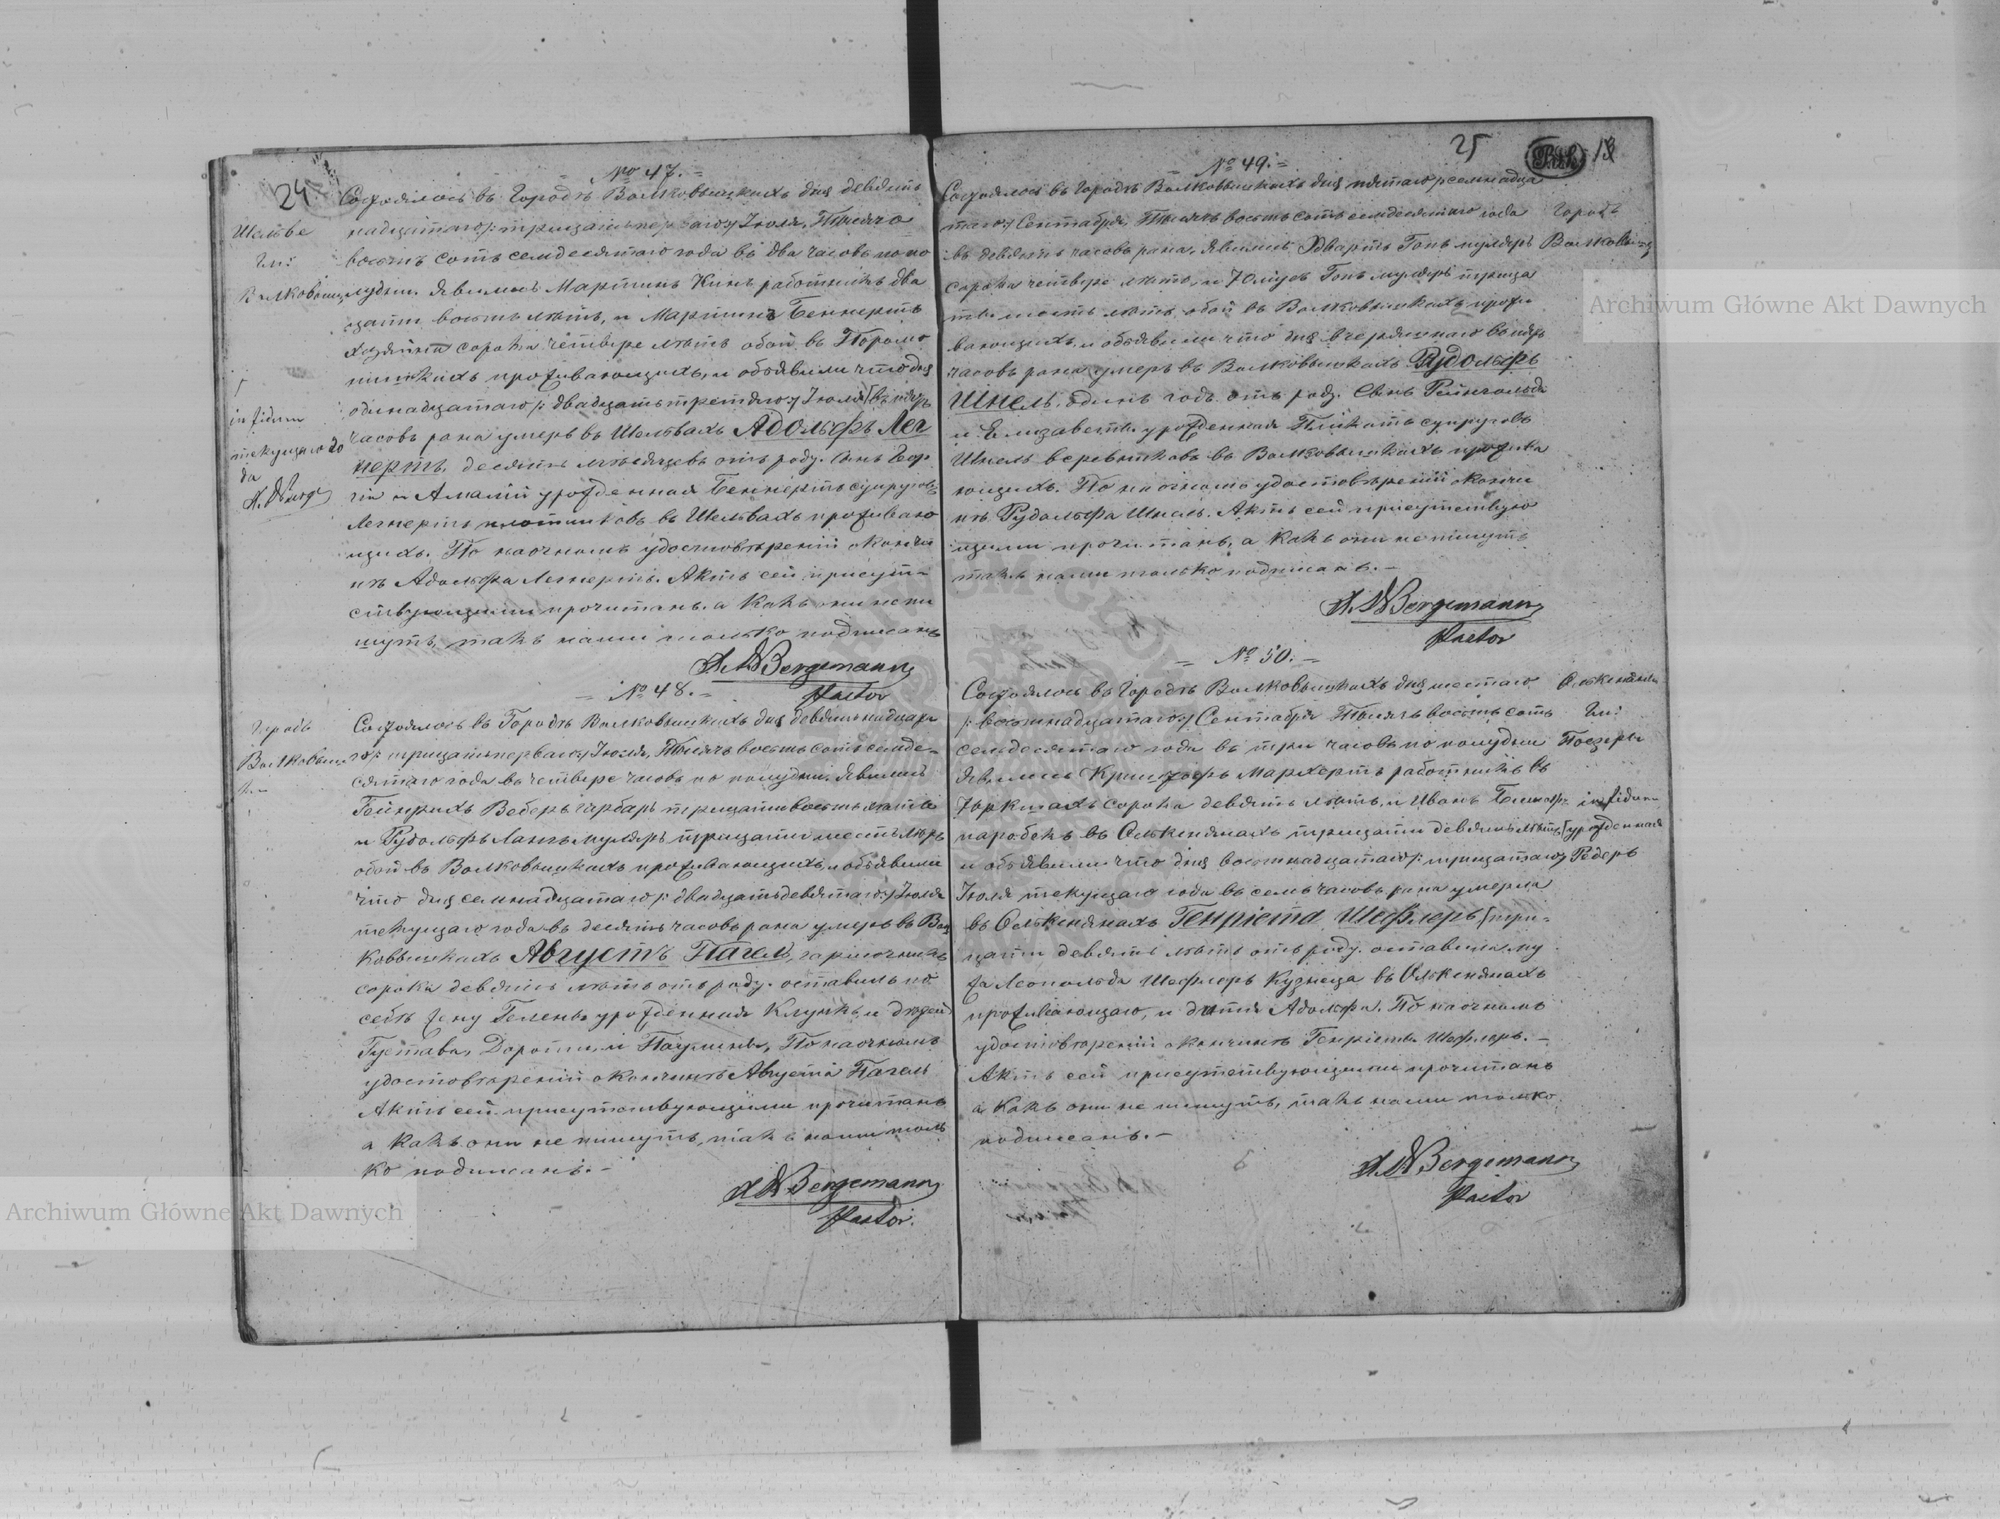 24
№ 47.
Состоялось въ Городѣ Волковышкахъ дня девят
надцатаго /: тридцать перваго :/ Іюля, Тысяча
восемь сотъ семдесятаго года въ два часовъ по по
лудни. Явились Мартинъ Кинъ работникъ два
дцати восемь лѣтъ, и Мартинъ Беннертъ
хозяинъ сорока четвере лѣтъ обои въ
проживающихъ, и объявили что дня
одинадцатаго /: двадцать третяго :/ Іюля въ
часовъ рана умеръ въ Шельвахъ Адольфъ Лег
нертъ, десять мѣсяцевъ отъ роду. Сынъ
и Амаліи урожденная Беннертъ супруговъ
Легнертъ плотниковъ въ Шельвахъ проживаю
щихъ. По наочномъ удостовѣреніи о кончи
нѣ Адольфа Легнертъ. Актъ сей присут
ствующими прочитанъ, а какъ они не пи
шутъ, такъ нами только подписанъ
A. W Bergemann
Pastor
Шельве
гм:
Волковышки
in fidem
текущаго го
да
№ 48.
Городъ
Волковышки
Состоялось въ Городѣ Волковышкахъ дня девятнадцата
го /: тридцать перваго :/ Іюля, Тысяча восемь сотъ семде
сятаго года въ четвере часовъ по полудни. Явились
Гейнрихъ Веберъ гарбарь тридцати восемь лѣтъ
и Рудольфъ Лангъ мулярь тридцати шесть лѣтъ
обои въ Волковышкахъ проживающихъ, и объявили
что дня семнадцатаго /: двадцать девятаго :/ Іюля
текущаго года въ десять часовъ рана умеръ въ Вол
ковышкахъ Августъ Пагель,
сорока девять лѣтъ отъ роду. оставилъ по
себѣ жену Гелену урожденная Клункъ, и дѣтей
Густава, Дороти, и Паулину, По наочномъ
удостовѣреніи о кончинѣ Августа Пагель
Актъ сей присутствующими прочитанъ
а какъ они не пишутъ, такъ нами толь
ко подписанъ.
A W Bergemann
Pastor.
25
№ 49.
Состоялось въ Городѣ Волковышкахъ дня пятаго /: семнадца
таго :/ Сентября, Тысяча восемь сотъ семдесятаго года
въ девять часовъ рана. Явились Эдвартъ Гопъ мулярь
сорока четвере лѣтъ, и Юліусъ Гопъ мулярь тридца
ти шесть лѣтъ обои въ Волковышкахъ прожи
вающихъ, и объявили что дня вчерашнаго въ пять
часовъ рана умеръ въ Волковышкахъ Рудольфъ
Шнель, одинъ годъ отъ роду. Сынъ Рейнгольда
и Елизаветы урожденная супруговъ
Шнель въ Волковышкахъ прожива
ющихъ. По наочномъ удостовѣреніи о кончи
нѣ Рудольфа Шнель. Актъ сей присутствую
щими прочитанъ, а какъ они не пишутъ
такъ нами только подписанъ.
A. W Bergemann
Pastor
Городъ
Волковышки
№ 50.
Состоялось въ Городѣ Волковышкахъ дня шестаго
/: восемнадцатаго :/ Сентября Тысяча восемь сотъ
семьдесятаго года въ три часовъ по полудни
Явились Криштофъ Маркертъ работникъ въ
сорока девять лѣтъ, и Иванъ
паробекъ въ Олькснянахъ тридцати девять лѣтъ
и объявили что дня восемнадцатаго /: тридцатаго :/
Іюля текущаго года въ семь часовъ рана умерла
въ Олькснянахъ Генріета Шефлеръ, три
цати девять лѣтъ отъ роду. оставила му
жа Леопольда Шефлеръ Кузнеца въ Олькснянахъ
проживающаго, и дитя Адольфа. По наочномъ
удостовѣреніи о кончинѣ Генріеты Шефлеръ.
Актъ сей присутствующими прочитанъ
а какъ они не пишутъ, такъ нами только
подписанъ.
A. W Bergemann
Pastor
Олькcняны
гм:
Поезеры
in fidem
урожденная
Редеръ
Archiwum Główne Akt Dawnych
Archiwum Główne Akt Dawnych